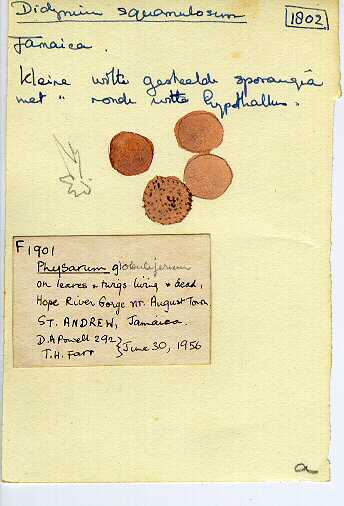 Didymium squamulosum
1802
Jamaica.
Kleine witte gesteelde sporangia
met " ronde witte hypothallus.
F1901
Physarum globuliferum
on leaves & twigs living & dead,
Hope River Gorge nr. August Town
ST. ANDREW, Jamaica.
D.A Powell 292
T.H. Farr
} June 30, 1956
a